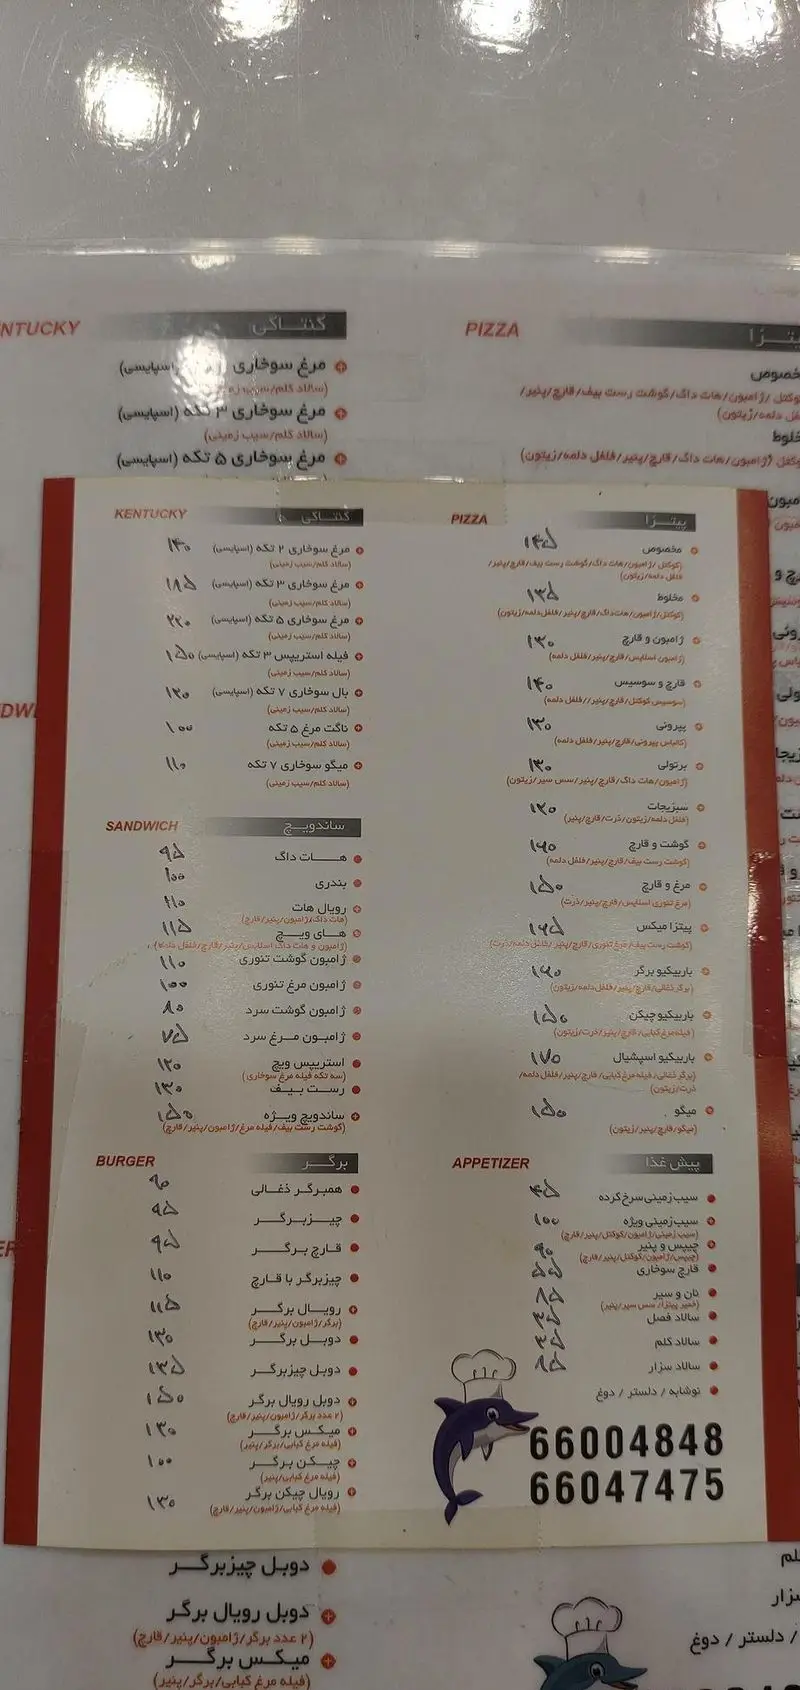 NTUCKY کنتاکی
مرغ سوخاری اسپایسی)
(سالاد کلم/سیب زمینی)
مرغ سوخاری ۳ تکه (اسپایسی)
(سالاد کلم/سیب زمینی)
مرغ سوخاری ۵ تکه (اسپایسی)
PIZZA
KENTUCKY کنتاکی
مرغ سوخاری ۲ تکه (اسپایسی) ۱۴۰
(سالاد کلم/سیب زمینی)
مرغ سوخاری ۳ تکه (اسپایسی) ۱۸۵
(سالاد کلم/سیب زمینی)
مرغ سوخاری ۵ تکه (اسپایسی) ۲۲۰
(سالاد کلم/سیب زمینی)
فیله استریپس ۳ تکه (اسپایسی) ۱۵۰
(سالاد کلم/سیب زمینی)
بال سوخاری ۷ تکه (اسپایسی)
(سالاد کلم/سیب زمینی)
ناگت مرغ ۵ تکه ۱۰۰
(سالاد کلم/سیب زمینی)
میگو سوخاری ۷ تکه ۱۱۰
(سالاد کلم/سیب زمینی)
SANDWICH ساندویچ
هات داگ ۹۵
بندری ۱۰۰
رویال هات ۱۱۰
(هات داگ/ژامبون/پنیر/قارچ)
های ویچ ۱۱۵
ژامبون گوشت تنوری ۱۱۰
ژامبون مرغ تنوری ۱۰۰
ژامبون گوشت سرد ۸۰
ژامبون مرغ سرد ۷۵
استریپس ویچ ۱۲۰
(سه تکه فیله مرغ سوخاری)
رست بیف ۱۳۰
ساندویچ ویژه ۱۵۰
(گوشت رست بیف/فیله مرغ/ژامبون/پنیر/قارچ)
BURGER برگر
همبرگر ذغالی ۹۰
چیزبرگر ۹۵
قارچ برگر ۹۵
چیزبرگر با قارچ ۱۱۰
رویال برگر ۱۱۵
(برگر/ژامبون/پنیر/قارچ)
دوبل برگر ۱۳۰
دوبل چیزبرگر ۱۳۵
دوبل رویال برگر ۱۵۰
(۲ عدد برگر/ژامبون/پنیر/قارچ)
میکس برگر ۱۳۰
(فیله مرغ کبابی/برگر/پنیر)
چیکن برگر ۱۰۰
(فیله مرغ کبابی/پنیر)
رویال چیکن برگر ۱۳۰
(فیله مرغ کبابی/ژامبون/پنیر/قارچ)
PIZZA پیتزا
مخصوص ۱۴۵
(کوکتل /ژامبون/هات داگ/گوشت رست بیف/قارچ/پنیر/
فلفل دلمه/زیتون)
مخلوط ۱۳۵
(کوکتل/ژامبون/هات‌داگ/قارچ/پنیر/فلفل‌دلمه/زیتون)
ژامبون و قارچ ۱۳۰
(ژامبون اسلایس/قارچ/پنیر/فلفل دلمه)
قارچ و سوسیس ۱۴۰
(سوسیس کوکتل/قارچ/پنیر//فلفل دلمه)
پپرونی ۱۳۰
(کالباس پپرونی/قارچ/پنیر/فلفل دلمه)
برتولی ۱۳۰
(ژامبون/هات داگ/قارچ/پنیر/سس سیر/زیتون)
سبزیجات
(فلفل دلمه/زیتون/ذرت/قارچ/پنیر)
گوشت و قارچ ۱۶۰
(گوشت رست بیف/قارچ/پنیر/فلفل دلمه)
مرغ و قارچ ۱۵۰
(مرغ تنوری اسلایس/قارچ/پنیر/ذرت)
پیتزا میکس ۱۶۵
(گوشت رست بیف/مرغ تنوری/قارچ/پنیر/فلفل دلمه/ذرت)
باربیکیو برگر ۱۶۰
(برگر ذغالی/قارچ/پنیر/فلفل‌دلمه/زیتون)
باربیکیو چیکن ۱۵۰
(فیله مرغ کبابی/قارچ/پنیر/ذرت/زیتون)
باربیکیو اسپشیال ۱۷۰
(برگر ذغالی/فیله مرغ کبابی/قارچ/پنیر/فلفل دلمه/
ذرت/زیتون)
میگو ۱۵۰
(میگو/قارچ/پنیر/زیتون)
APPETIZER پیش غذا
سیب زمینی سرخ کرده ۴۵
سیب زمینی ویژه ۱۰۰
(سیب زمینی/ژامبون/کوکتل/پنیر/قارچ)
چیپس و پنیر ۹۰
(چیپس/ژامبون/کوکتل/پنیر/قارچ)
قارچ سوخاری
نان و سیر
(خمیر پیتزا/سس سیر/پنیر)
سالاد فصل
سالاد کلم
سالاد سزار
نوشابه / دلستر / دوغ
66004848
66047475
دوبل چیزبرگر
دوبل رویال برگر
(۲ عدد برگر/ژامبون/پنیر/قارچ)
میکس برگر
(فیله مرغ کبابی/برگر/پنیر)
/ دلستر / دوغ